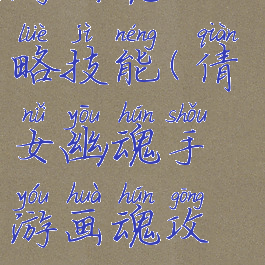 lüè jì néng qiàn
略技能(倩
nǚ yōu hún shǒu
女幽魂手
yóu huà hún gōng
游画魂攻